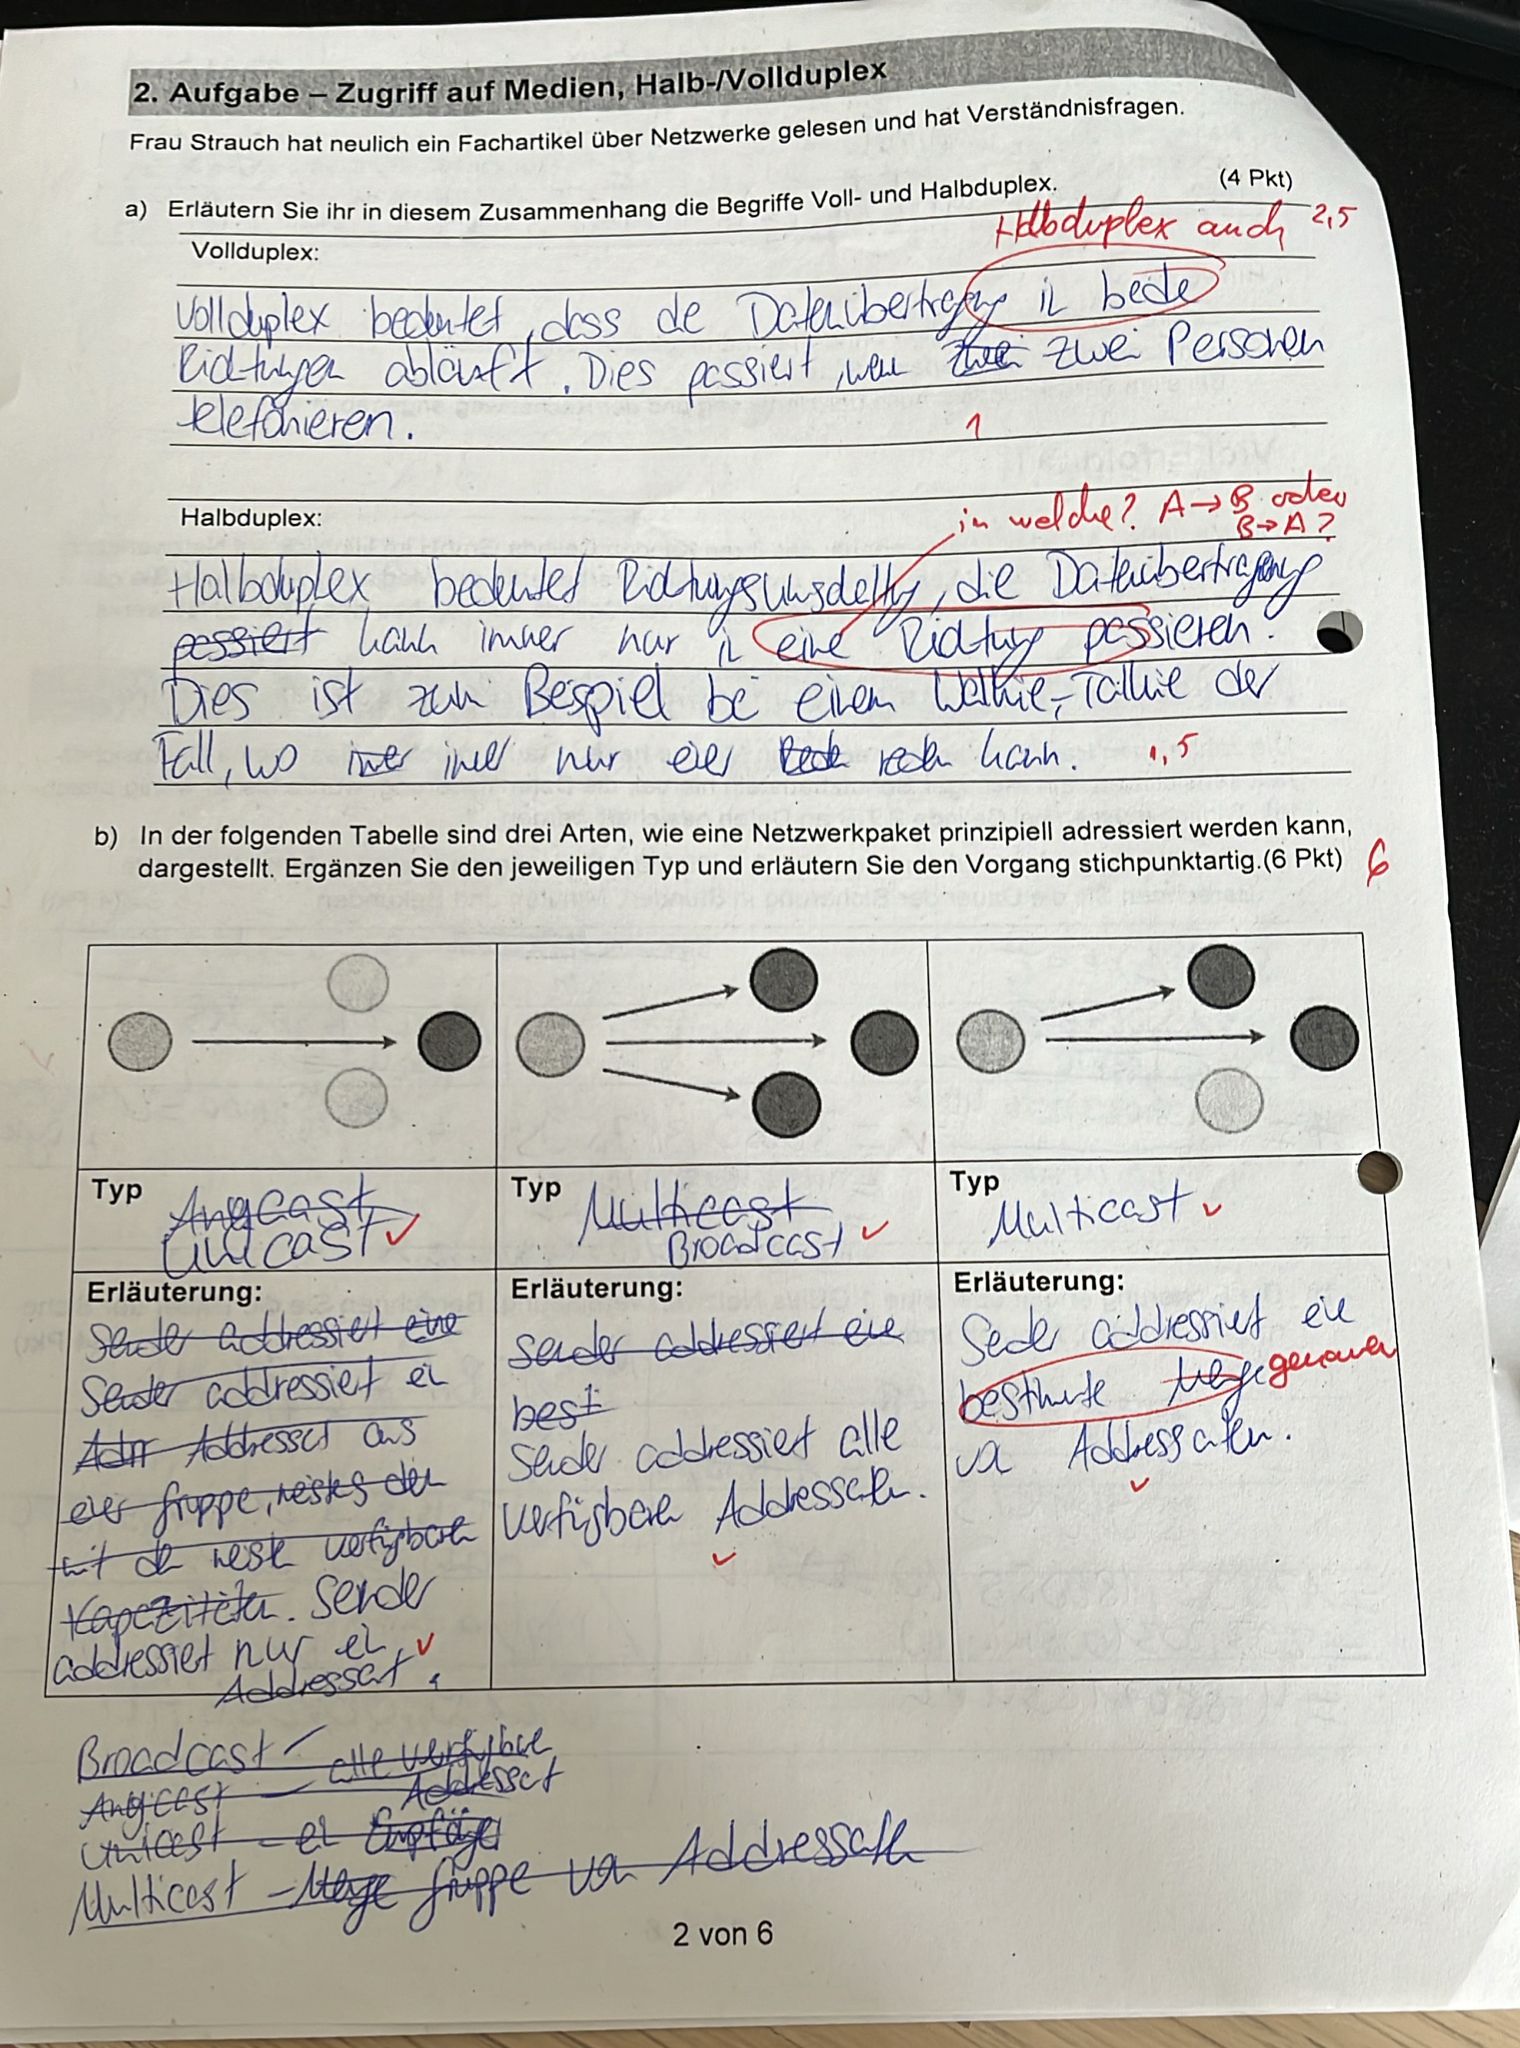 2. Aufgabe – Zugriff auf Medien, Halb-/Vollduplex
Frau Strauch hat neulich ein Fachartikel über Netzwerke gelesen und hat Verständnisfragen.
a) Erläutern Sie ihr in diesem Zusammenhang die Begriffe Voll- und Halbduplex. (4 Pkt)
Halbduplex auch 2,5
Vollduplex:
Vollduplex bedeutet, dass de Datenübertragung in beide
Richtungen abläuft. Dies passiert, wenn zwei Personen
telefonieren.
1
in welche? A→B oder
B→A?
Halbduplex:
Halbduplex bedeutet Richtungs, die Datenübertragung
passiert kann immer nur in eine Richtung passieren.
Dies ist zum Beispiel bei einem Walkie-Talkie der
Fall, wo immer nur einer reden kann. 1,5
b) In der folgenden Tabelle sind drei Arten, wie eine Netzwerkpaket prinzipiell adressiert werden kann,
dargestellt. Ergänzen Sie den jeweiligen Typ und erläutern Sie den Vorgang stichpunktartig.(6 Pkt) 6
Typ Anycast
Unicast ✓
Typ Multicast
Broadcast ✓
Typ
Multicast ✓
Erläuterung:
Sender addressiert eine
Sender addressiert ein
Addressat aus
einer gruppe,
mit den verfügbaren
Kapezitäten. Sender
addressiert nur ein ✓
Addressat.
Erläuterung:
Sender addressiert eine
best
Sender addressiert alle
verfügbaren Addressaten.
✓
Erläuterung:
Sender addressiert eine
bestimmte Menge genauer
von Addressaten.
✓
Broadcast – alle verfügbare
Addressat
Anycast –
Unicast – ein Empfänger
Multicast – Menge gruppe von Addressaten
2 von 6